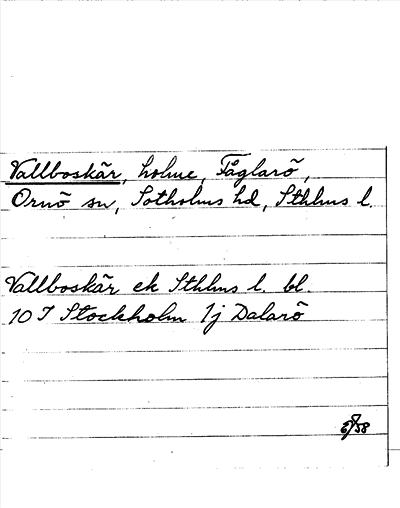 Vallboskär, holme, Fåglarö,
Ornö sn, Sotholms hd, Sthlms l.
Vallboskär ek Sthlms l. bl.
10 I Stockholm 1j Dalarö